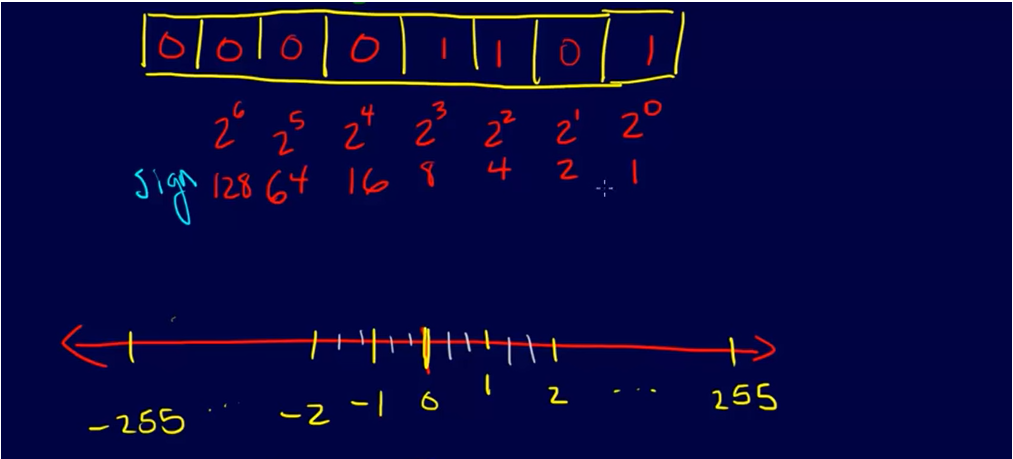 0 0 0 0 1 1 0 1
2^6 2^5 2^4 2^3 2^2 2^1 2^0
sign 128 64 16 8 4 2 1
-255 ... -2 -1 0 1 2 ... 255